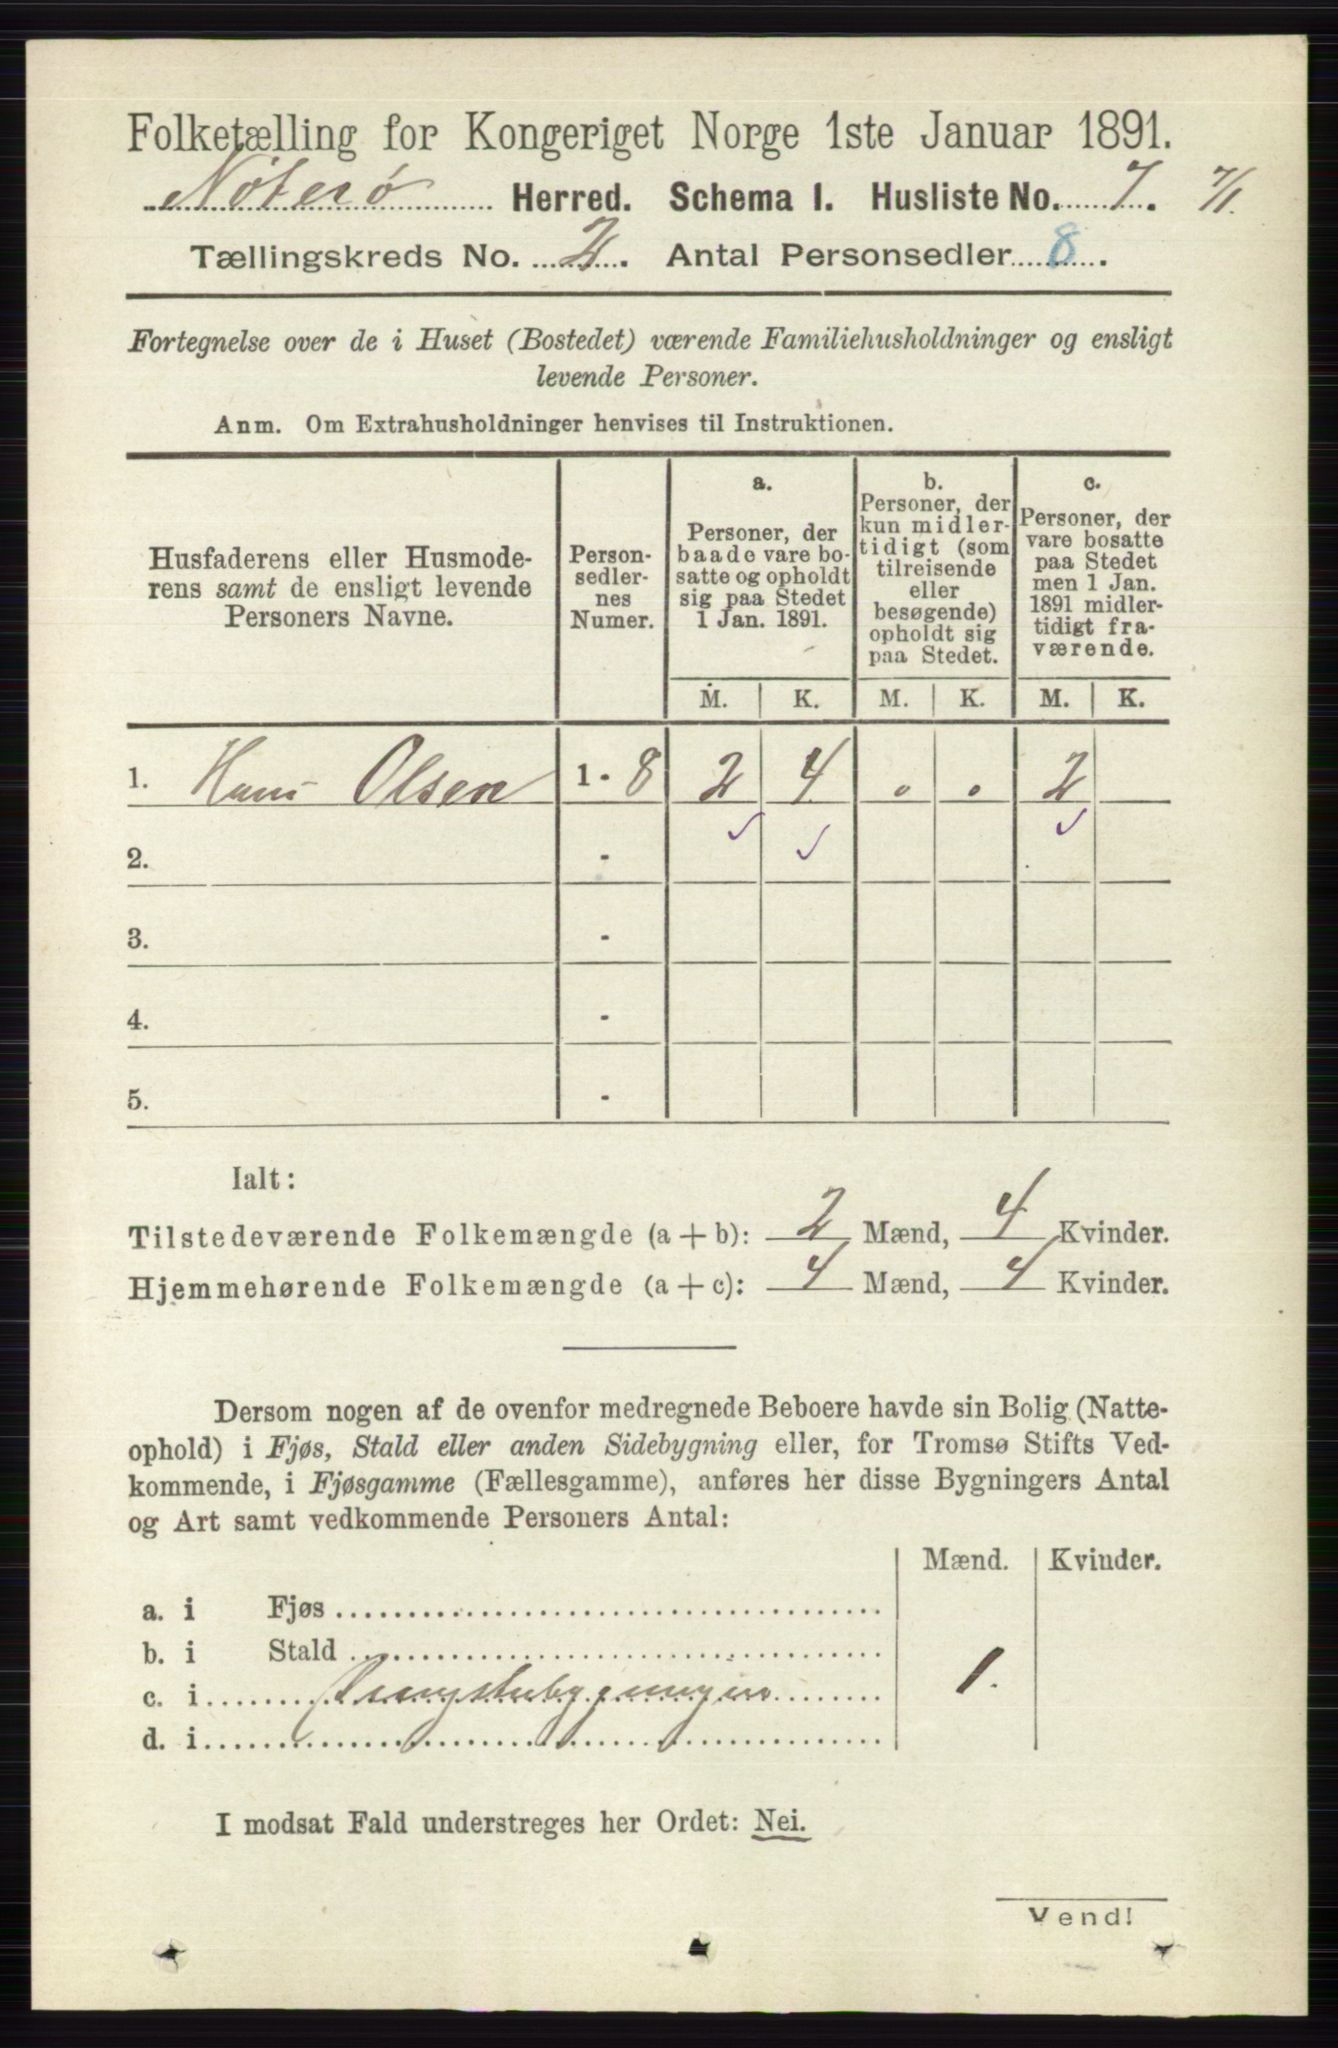 Folketælling for Kongeriget Norge 1ste Januar 1891.
Nøterø Herred. Schema I. Husliste No. 7. 7/1.
Tællingskreds No. 2. Antal Personsedler 8.
Fortegnelse over de i Huset (Bostedet) værende Familiehusholdninger og ensligt
levende Personer.
Anm. Om Extrahusholdninger henvises til Instruktionen.
Husfaderens eller Husmode-
rens samt de ensligt levende
Personers Navne.
Person-
sedler-
nes
Numer.
a.
Personer, der
baade vare bo-
satte og opholdt
sig paa Stedet
1 Jan. 1891.
b.
Personer, der
kun midler-
tidigt (som
tilreisende
eller
besøgende)
opholdt sig
paa Stedet.
c.
Personer, der
vare bosatte
paa Stedet
men 1 Jan.
1891 midler-
tidigt fra-
værende.
M. K. M. K. M. K.
1. Hans Olsen 1 - 8 2 4 . . 2
2. -
3. -
4. -
5. -
Ialt:
Tilstedeværende Folkemængde (a + b): 2 Mænd, 4 Kvinder.
Hjemmehørende Folkemængde (a + c): 4 Mænd, 4 Kvinder.
Dersom nogen af de ovenfor medregnede Beboere havde sin Bolig (Natte-
ophold) i Fjøs, Stald eller anden Sidebygning eller, for Tromsø Stifts Ved-
kommende, i Fjøsgamme (Fællesgamme), anføres her disse Bygningers Antal
og Art samt vedkommende Personers Antal:
Mænd. Kvinder.
a. i Fjøs
b. i Stald
c. i 1.
d. i
I modsat Fald understreges her Ordet: Nei.
Vend!